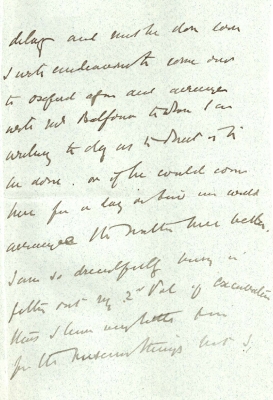 delay and must be done soon
I will endeavour to come over
to Oxford again and arrange
with Mr Balfour to whom I am
writing to day as to what is to
be done. or if he could come
here for a day or two we could
arrange the matter here better.
I am so dreadfully busy in
getting out my 2nd Vol of Excavations
this I have very little time
for the Museum things but I